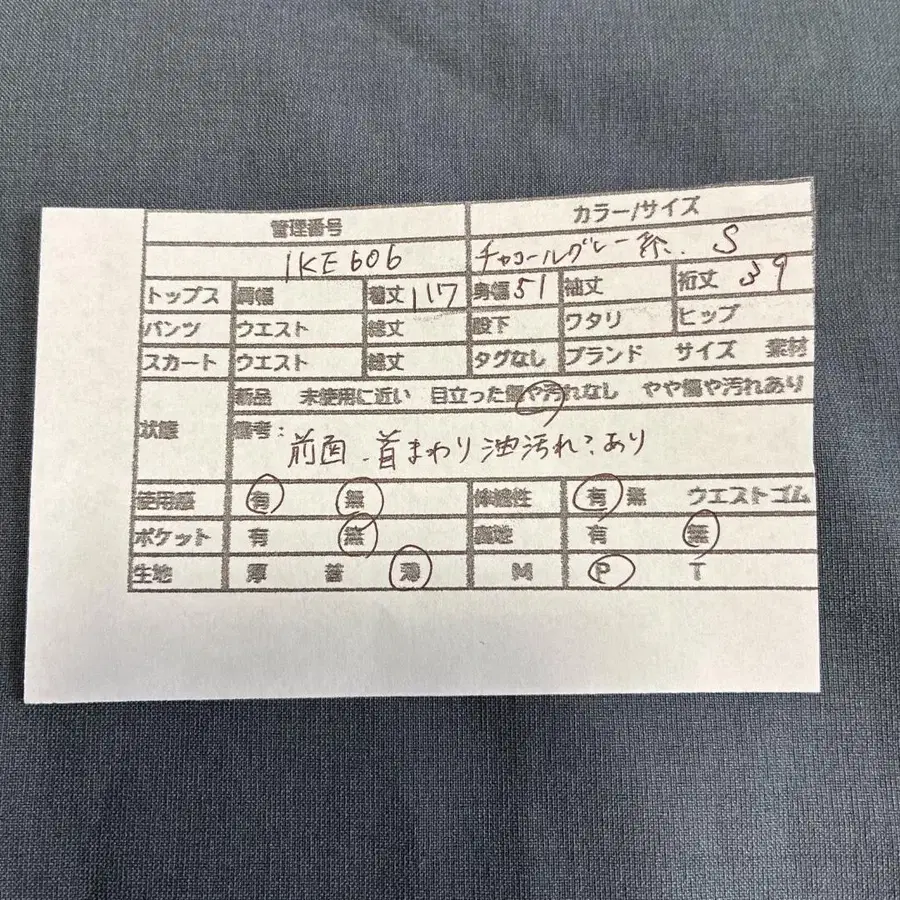 管理番号 カラー/サイズ
IKE606 チャコールグレー系. S
トップス 肩幅 着丈 117 身幅 51 袖丈 裄丈 39
パンツ ウエスト 総丈 股下 ワタリ ヒップ
スカート ウエスト 総丈 タグなし ブランド サイズ 素材
状態 新品 未使用に近い 目立った傷や汚れなし やや傷や汚れあり
備考:
前面.首まわり油汚れ?あり
使用感 有 無 伸縮性 有 無 ウエストゴム
ポケット 有 無 裏地 有 無
生地 厚 普 薄 M P T